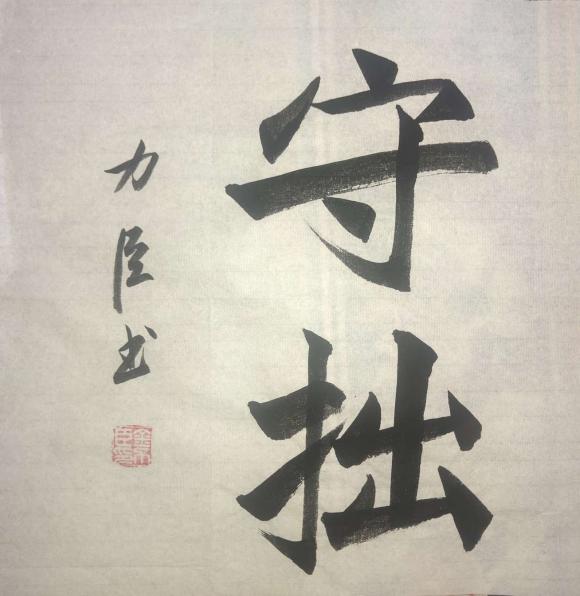 守拙
力臣书